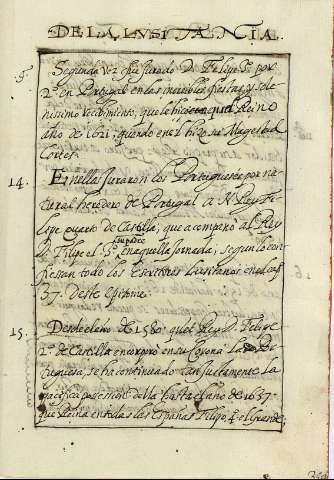 DE LA LVSITANIA.
Segunda vez fue jurado D. Felipe 3º por
2º en Portugal en las increibles fiestas, y sole-
nissimo recebimiento, que le hizo aquel Reino
año de 1621, quando en el hizo su Magestad
Cortes.
14. En ellas juraron los Portugueses por na-
tural heredero de Portugal a N. Rey Fe-
lipe quarto de Castilla, que acompaño al Rey
su padre
D. Filipe el 3º en aquella jornada, segun lo con-
fiesan todo los Escritores Lusitanos en la
37. deste Epitome.
15. Desde el año de 1580 que el Rey D. Felipe
2º de Castilla encorporò en su Corona la Por-
tuguesa, se ha continuado tan justamente la
pacifica possession della hasta el año de 1637.
que Reina en todas las Españas Filipe 4º el Grande;